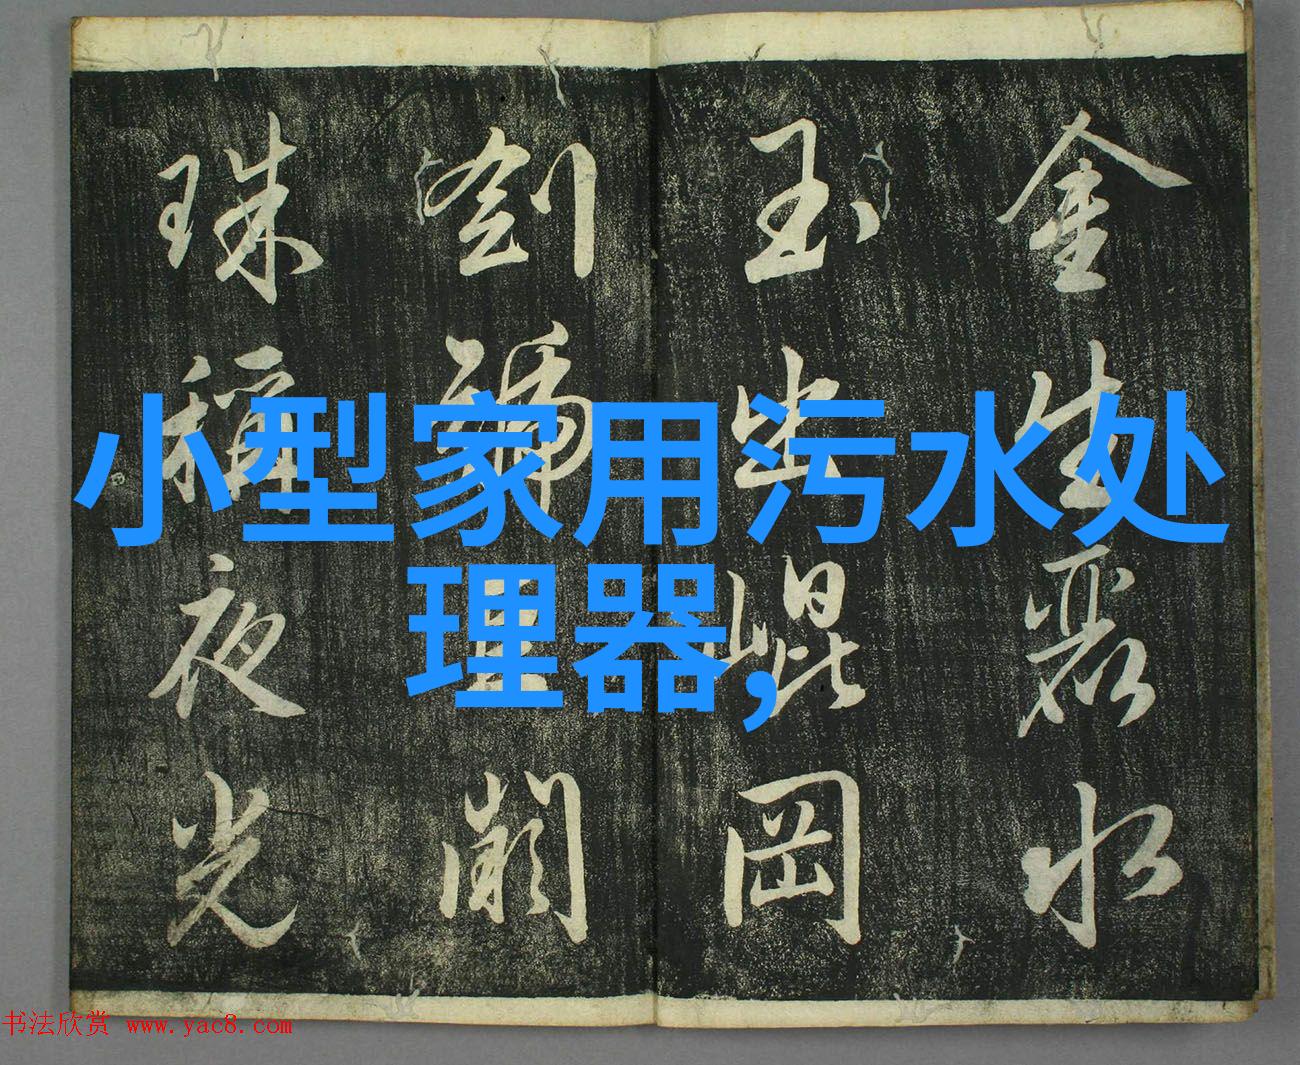 小型家用污水处
理器,
金生麗水
玉出崐岡
劍號巨闕
珠稱夜光
书法欣赏 www.yac8.com